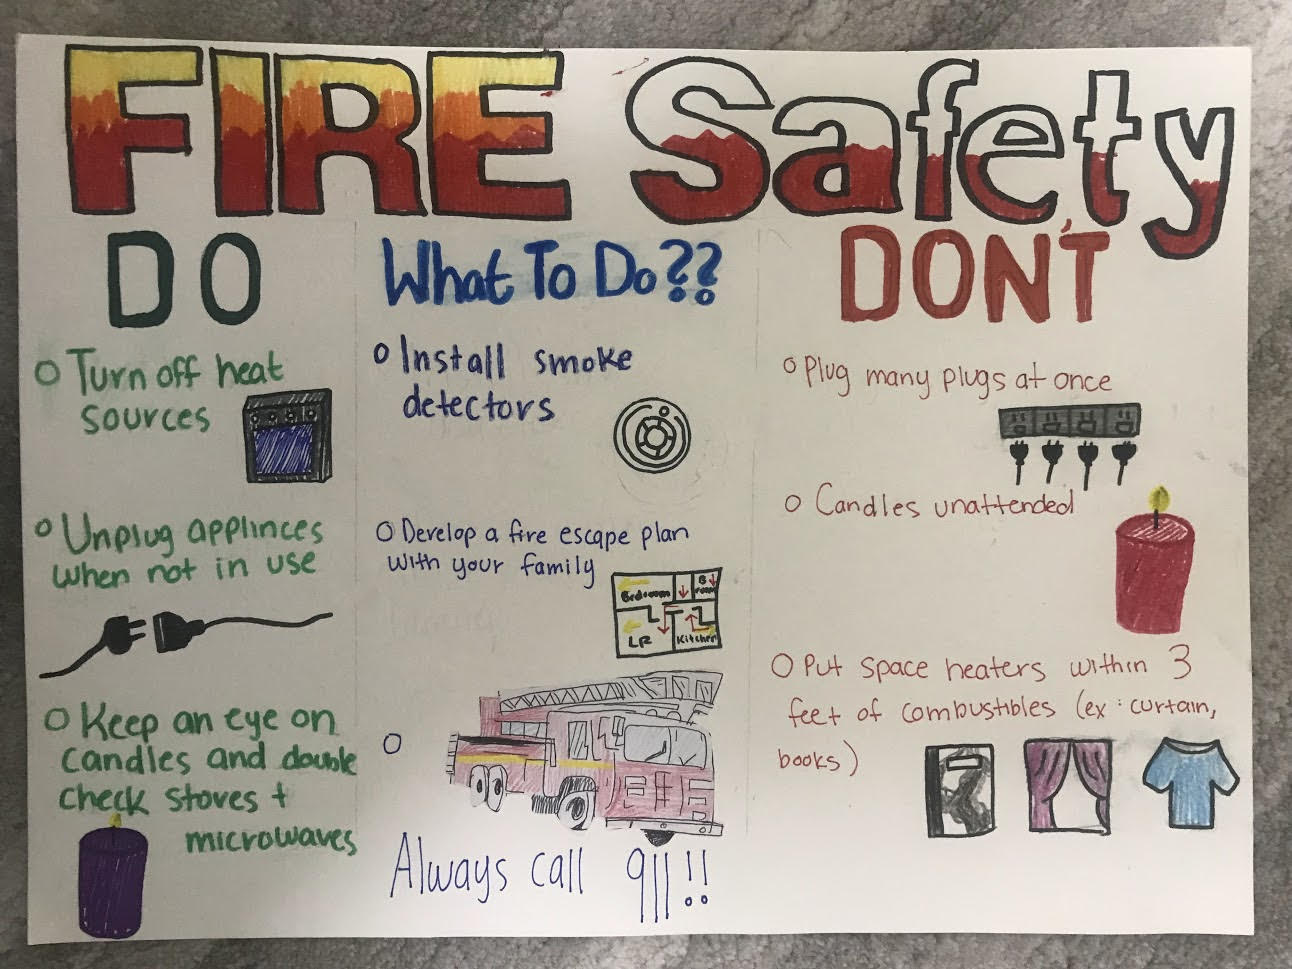 FIRE Safety
DO
Turn off heat
sources
Unplug applinces
when not in use
Keep an eye on
candles and double
check stoves +
microwaves
What To Do??
Install smoke
detectors
Develop a fire escape plan
with your family
Bedroom
B
room
LR
Kitchen
Always call 911!!
DON'T
Plug many plugs at once
Candles unattended
Put space heaters within 3
feet of combustibles (ex: curtain,
books)